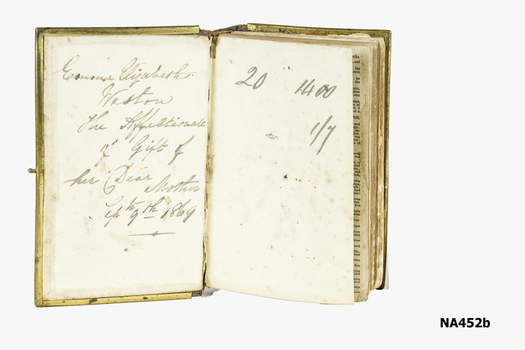 Emma Elizabeth
Weston
The Affectionate
Gift of
her Dear Mother
Septh 9th 1869
20 1400
1/7
NA452b